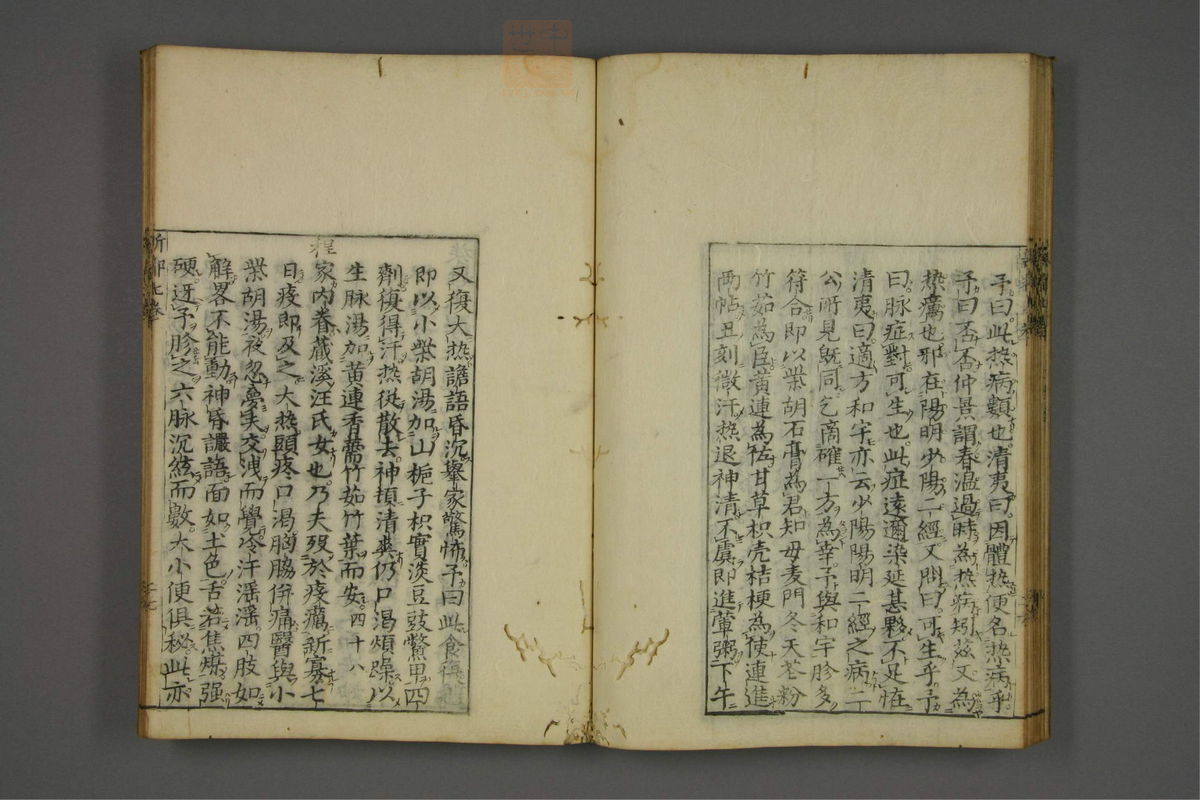 予曰此热病類也清夷曰因體热便名热病乎
予曰否否仲景謂春温過時為热病矧兹又為
热癘也邪在陽明少陽二經又問曰可生乎予
曰脉症對可生也此症遠邇染延甚夥不足怪
清夷曰適方和宇亦云少陽陽明二經之病二
公所見既同乞商確一方為幸予與和宇胗多
符合即以柴胡石膏為君知母麦門冬天花粉
竹茹為臣黄連為佐甘草枳壳桔梗為使連進
两帖丑刻微汗热退神清不虞即進葷粥下午
又復大热譫語昏沉舉家驚怖予曰此食復
即以小柴胡湯加山栀子枳實淡豆豉鱉甲四
劑復得汗热従散去神頓清爽仍口渴煩躁以
生脉湯加黄連香薷竹茹竹葉而安四十八
程家内眷藏溪汪氏女也乃夫殁於疫癘新寡七
日疫即及之大热頭疼口渴胸脇併痛醫與小
柴胡湯夜忽夢夫交洩而覺冷汗滛滛四肢如
解畧不能動神昏讝語面如土色舌若焦煤强
硬迓予胗之六脉沉絃而數大小便俱秘此亦